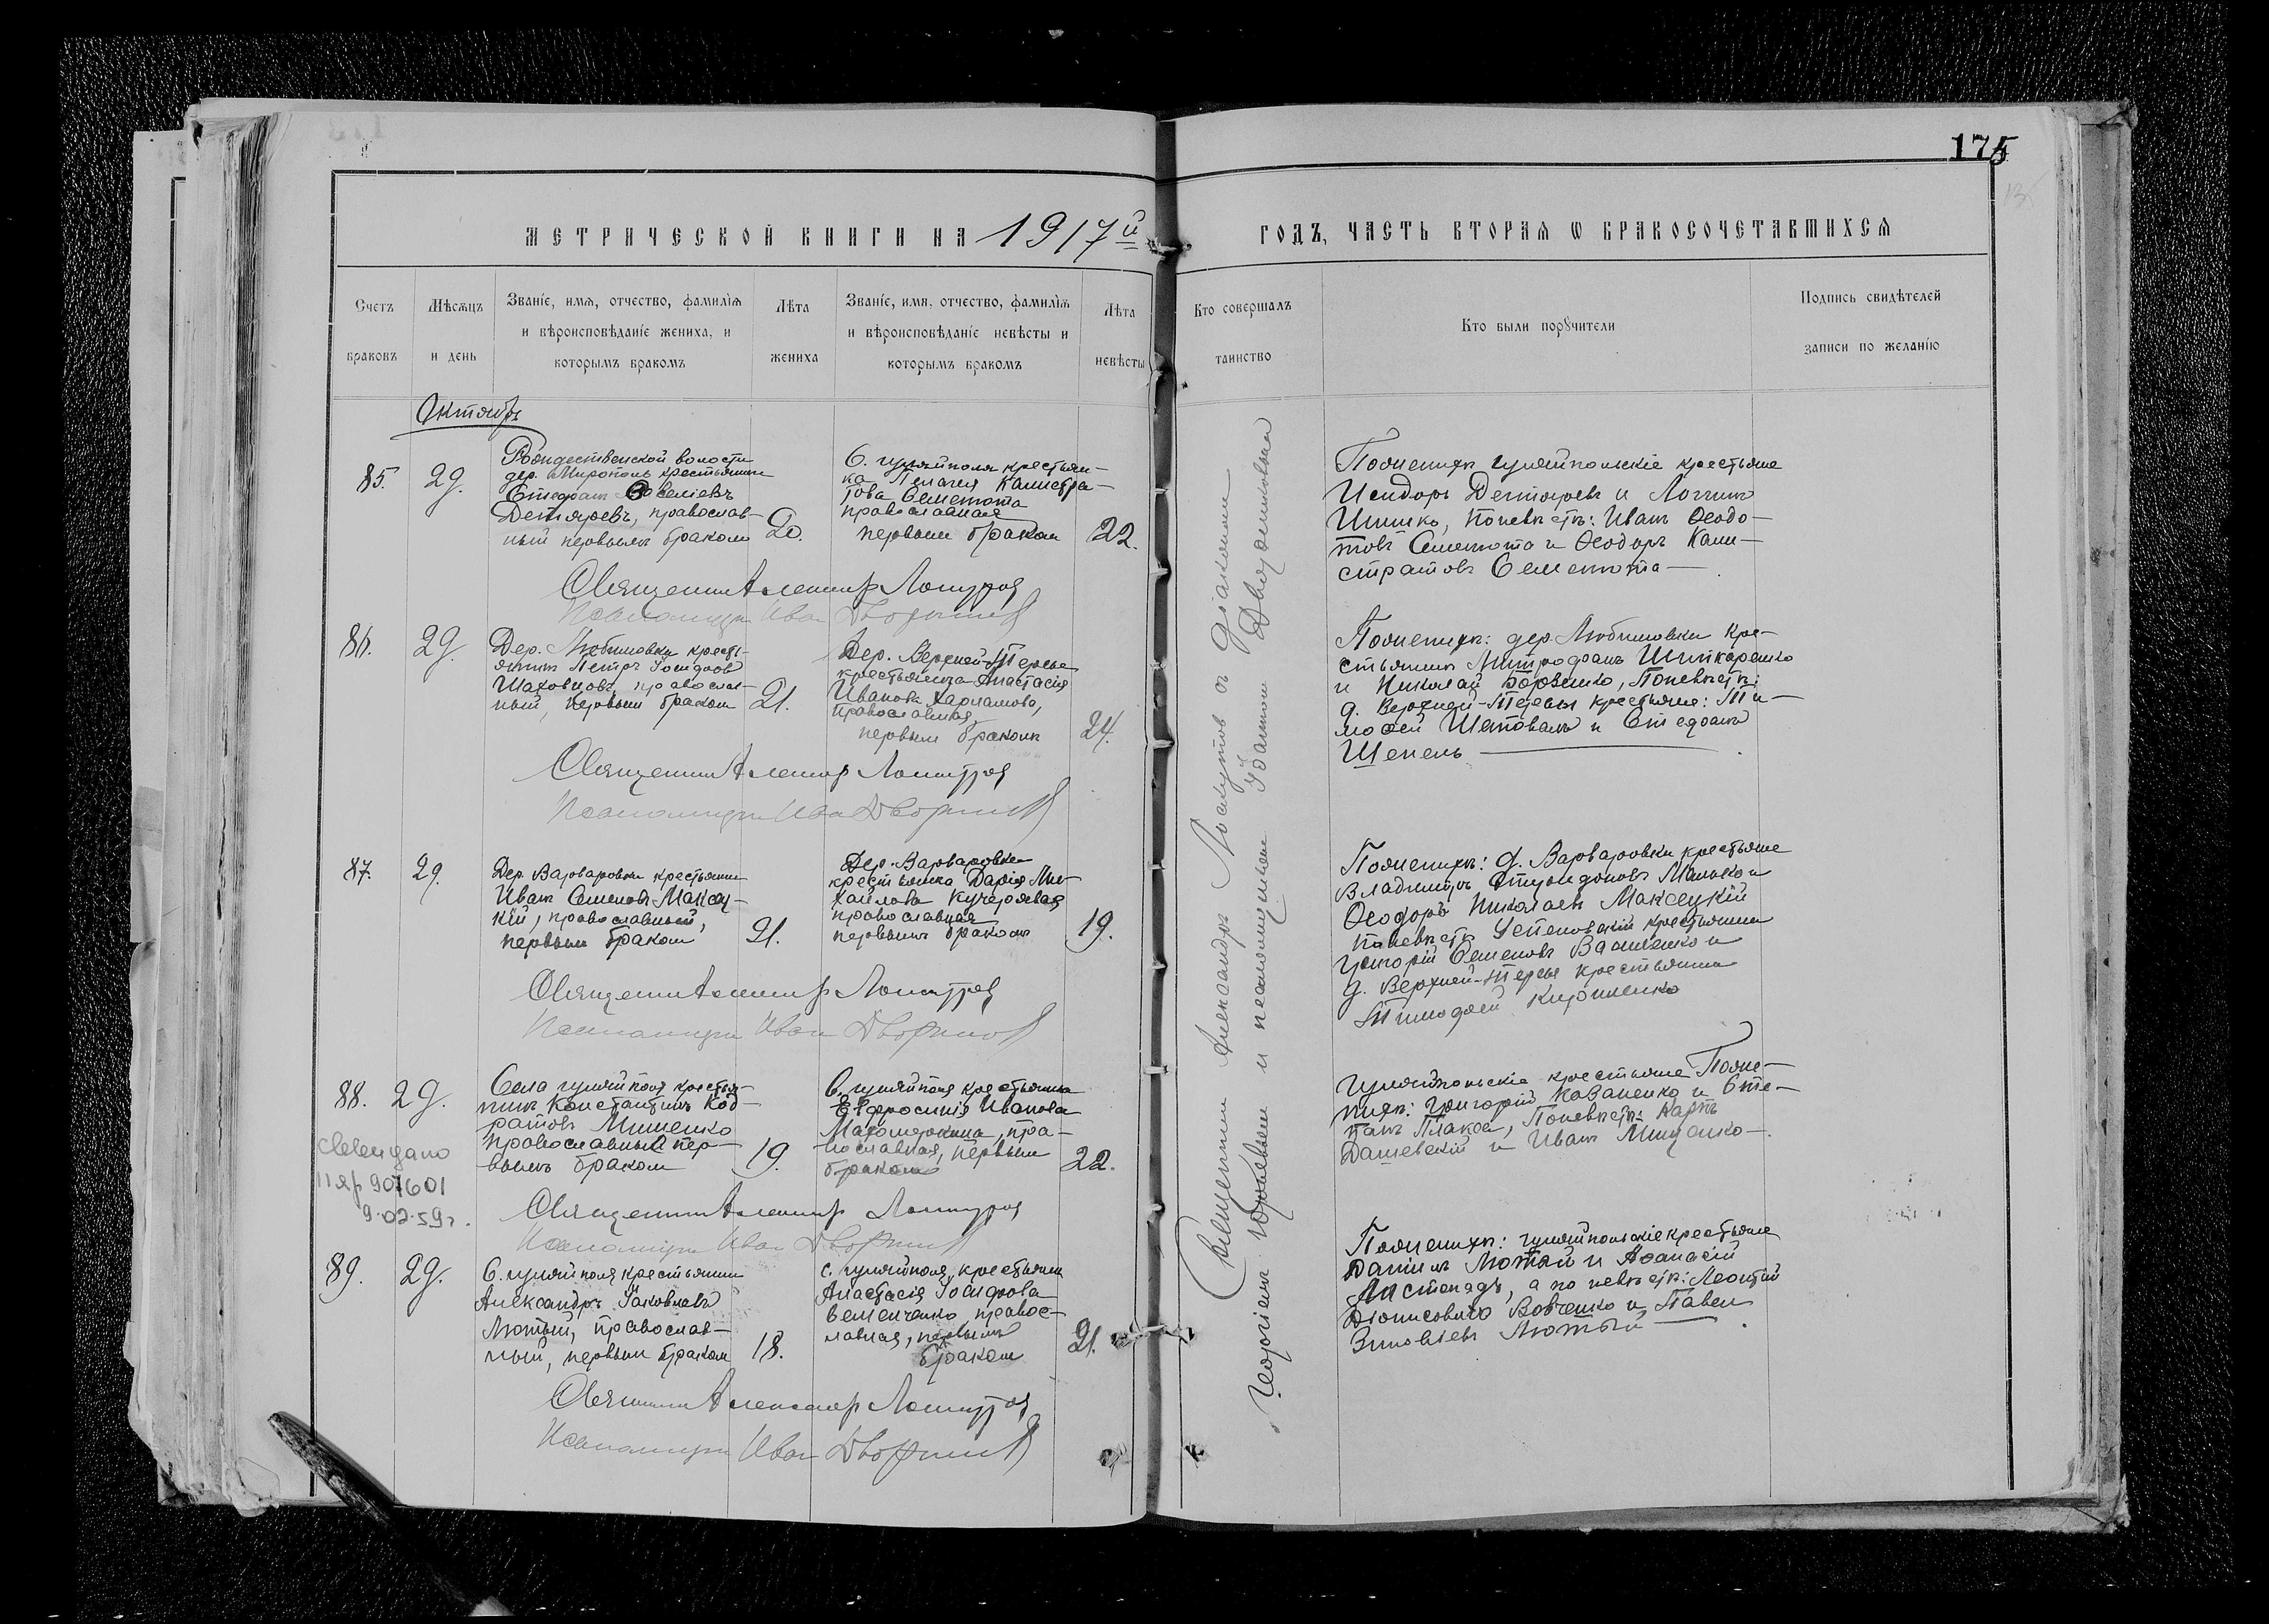 175
МЕТРИЧЕСКОЙ КНИГИ НА 1917й
ГОДЪ, ЧАСТЬ ВТОРАЯ Ѡ БРАКОСОЧЕТАВШИХСЯ
Счетъ
браковъ
Мѣсяцъ
и день
Званіе, имя, отчество, фамилія
и вѣроисповѣданіе жениха, и
которымъ бракомъ
Лѣта
жениха
Званіе, имя, отчество, фамилія
и вѣроисповѣданіе невѣсты и
которымъ бракомъ
Лѣта
невѣсты
Кто совершалъ
таинство
Кто были порꙋчители
Подпись свидѣтелей
записи по желанію
Октябрь
85.
29.
Рождественской волости
дер. Мирополь крестьянинъ
Стефанъ
Дегтяревъ, православ-
ный первымъ бракомъ
20.
С. Гуляйполя крестьян-
ка Пелагія Калистра-
това Семенота
православная
первымъ бракомъ
22.
По женихѣ гуляйпольскіе крестьяне
Исидоръ Дегтяревъ и Логгинъ
Шишко, по невѣстѣ: Иванъ Ѳеодо-
товъ Семенота и Ѳеодоръ Кали-
стратовъ Семенота
Священникъ Александръ Лоскутовъ
Псаломщикъ Иванъ Дворяниновъ
86.
29.
Дер. Любимовки кресть-
янинъ Петръ Іосифовъ
Шаховцовъ, православ-
ный, первымъ бракомъ
21.
Дер. Верхней-Терсы
крестьянка Анастасія
Иванова Харламова,
православная,
первымъ бракомъ
24.
По женихѣ: дер. Любимовки кре-
стьянинъ Митрофанъ Шинкаренко
и Николай Борзенко, По невѣстѣ:
д. Верхней-Терсы крестьяне: Ти-
моѳей Шаповалъ и Стефанъ
Шепель
Священникъ Александръ Лоскутовъ
Псаломщикъ Иванъ Дворяниновъ
87.
29.
Дер. Варваровки крестьянинъ
Иванъ Семеновъ Максец-
кій, православный,
первымъ бракомъ
21.
Дер. Варваровки
крестьянка Дарія Ми-
хайлова Кучерявая
православная
первымъ бракомъ
19.
По женихѣ: д. Варваровки крестьяне
Владиміръ Спиридоновъ Малько и
Ѳеодоръ Николаевъ Максецкій
По невѣстѣ Успеновскій крестьянинъ
Григорій Семеновъ Ващенко и
д. Верхней-Терсы крестьянинъ
Тимоѳей Кириченко
Священникъ Александръ Лоскутовъ
Псаломщикъ Иванъ Дворяниновъ
88.
29.
Села Гуляйполя крестья-
нинъ Константинъ Код-
ратовъ Мищенко
православный пер-
вымъ бракомъ
19.
С. Гуляйполя крестьянка
Евфросинія Иванова
Махомеркина, пра-
вославная, первымъ
бракомъ
22.
Гуляйпольскіе крестьяне По же-
нихѣ: Григорій Казаненко и Сте-
панъ Плаксы, По невѣстѣ: Карпъ
Дашевскій и Иванъ Мищенко
IIяр 907601
9.02.59г.
Священникъ Александръ Лоскутовъ
Псаломщикъ Иванъ Дворяниновъ
89.
29.
С. Гуляйполя крестьянинъ
Александръ Іаковлевъ
Лютый, православ-
ный, первымъ бракомъ
18.
С. Гуляйполя, крестьянка
Анастасія Іосифова
Семенченко правос-
лавная, первымъ
бракомъ
21.
По женихѣ: гуляйпольскіе крестьяне
Даніилъ Лютый и Аѳанасій
Листопадъ, а по невѣстѣ: Леонтій
Діонисовичъ Вовченко и Павелъ
Зиновіевъ Лютый
Священникъ Александръ Лоскутовъ
Псаломщикъ Иванъ Дворяниновъ
Священникъ Александръ Лоскутовъ съ діакономъ
Георгіемъ Юрьевымъ и псаломщикомъ Іоанномъ Дворяниновымъ